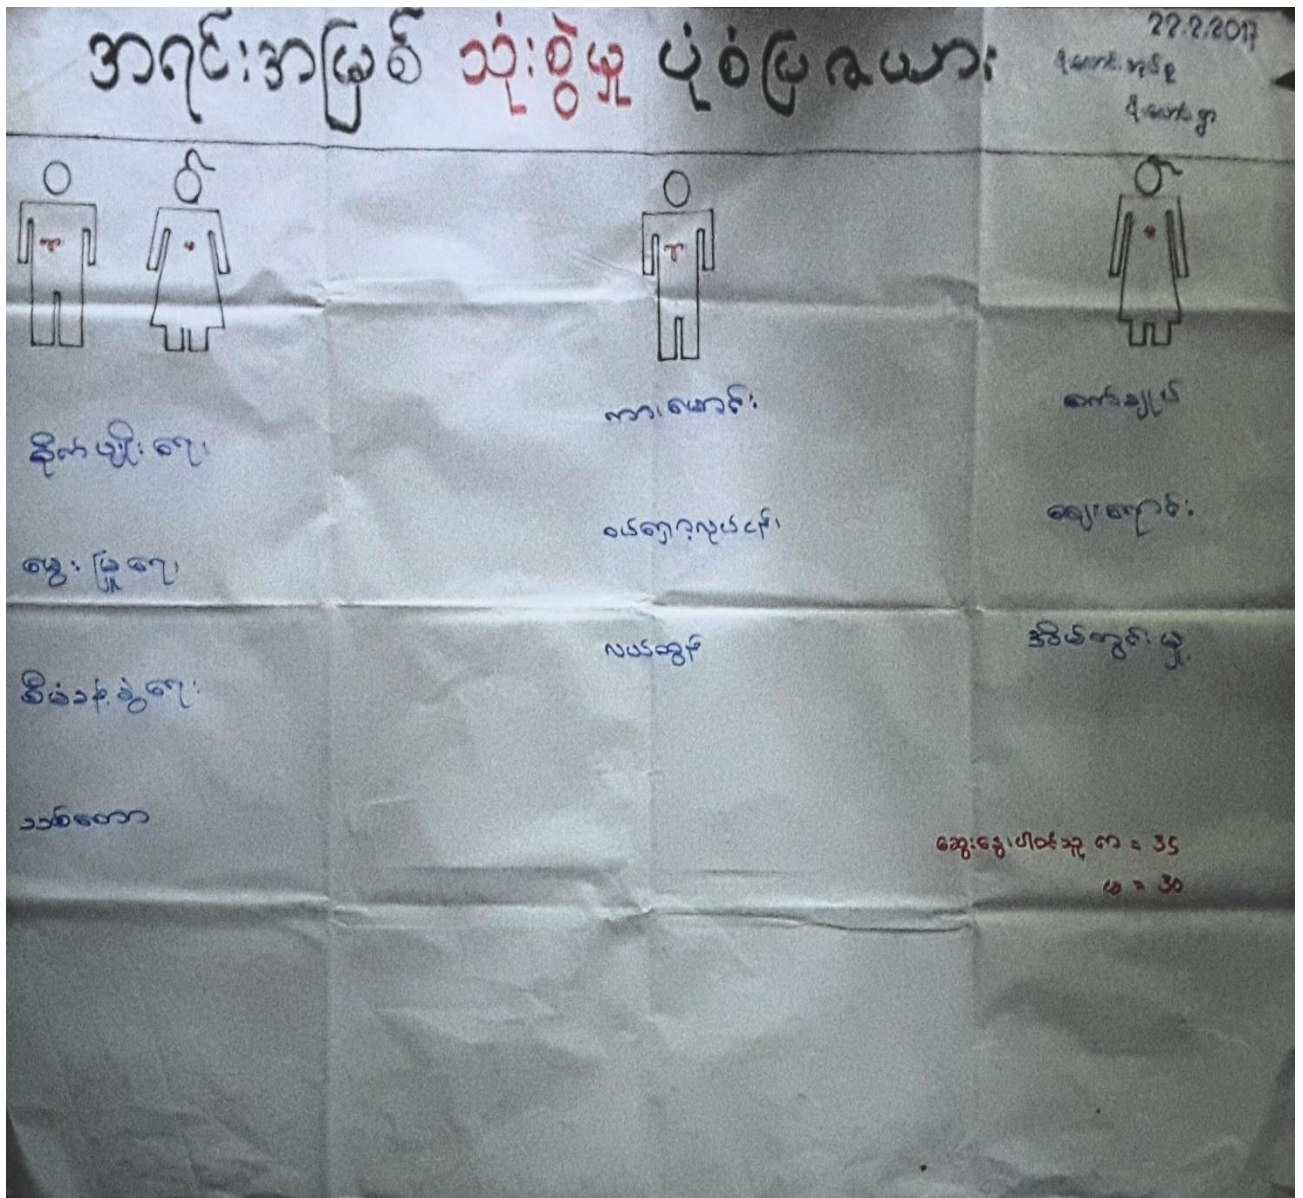 အရင်းအမြစ် သုံးစွဲမှု ပုံစံပြဇယား
22.2.2017
ကျား
မ
ကျား
မ
စိုက်ပျိုးရေး
မွေးမြူရေး
စီမံခန့်ခွဲရေး
သစ်တော
ကားမောင်း
ဝယ်ရောင်းလုပ်ငန်း
လယ်ထွန်
စက်ချုပ်
ဈေးရောင်း
အိမ်တွင်းမှု
ဆွေးနွေးပါဝင်သူ ကျား = 35
မ = 30